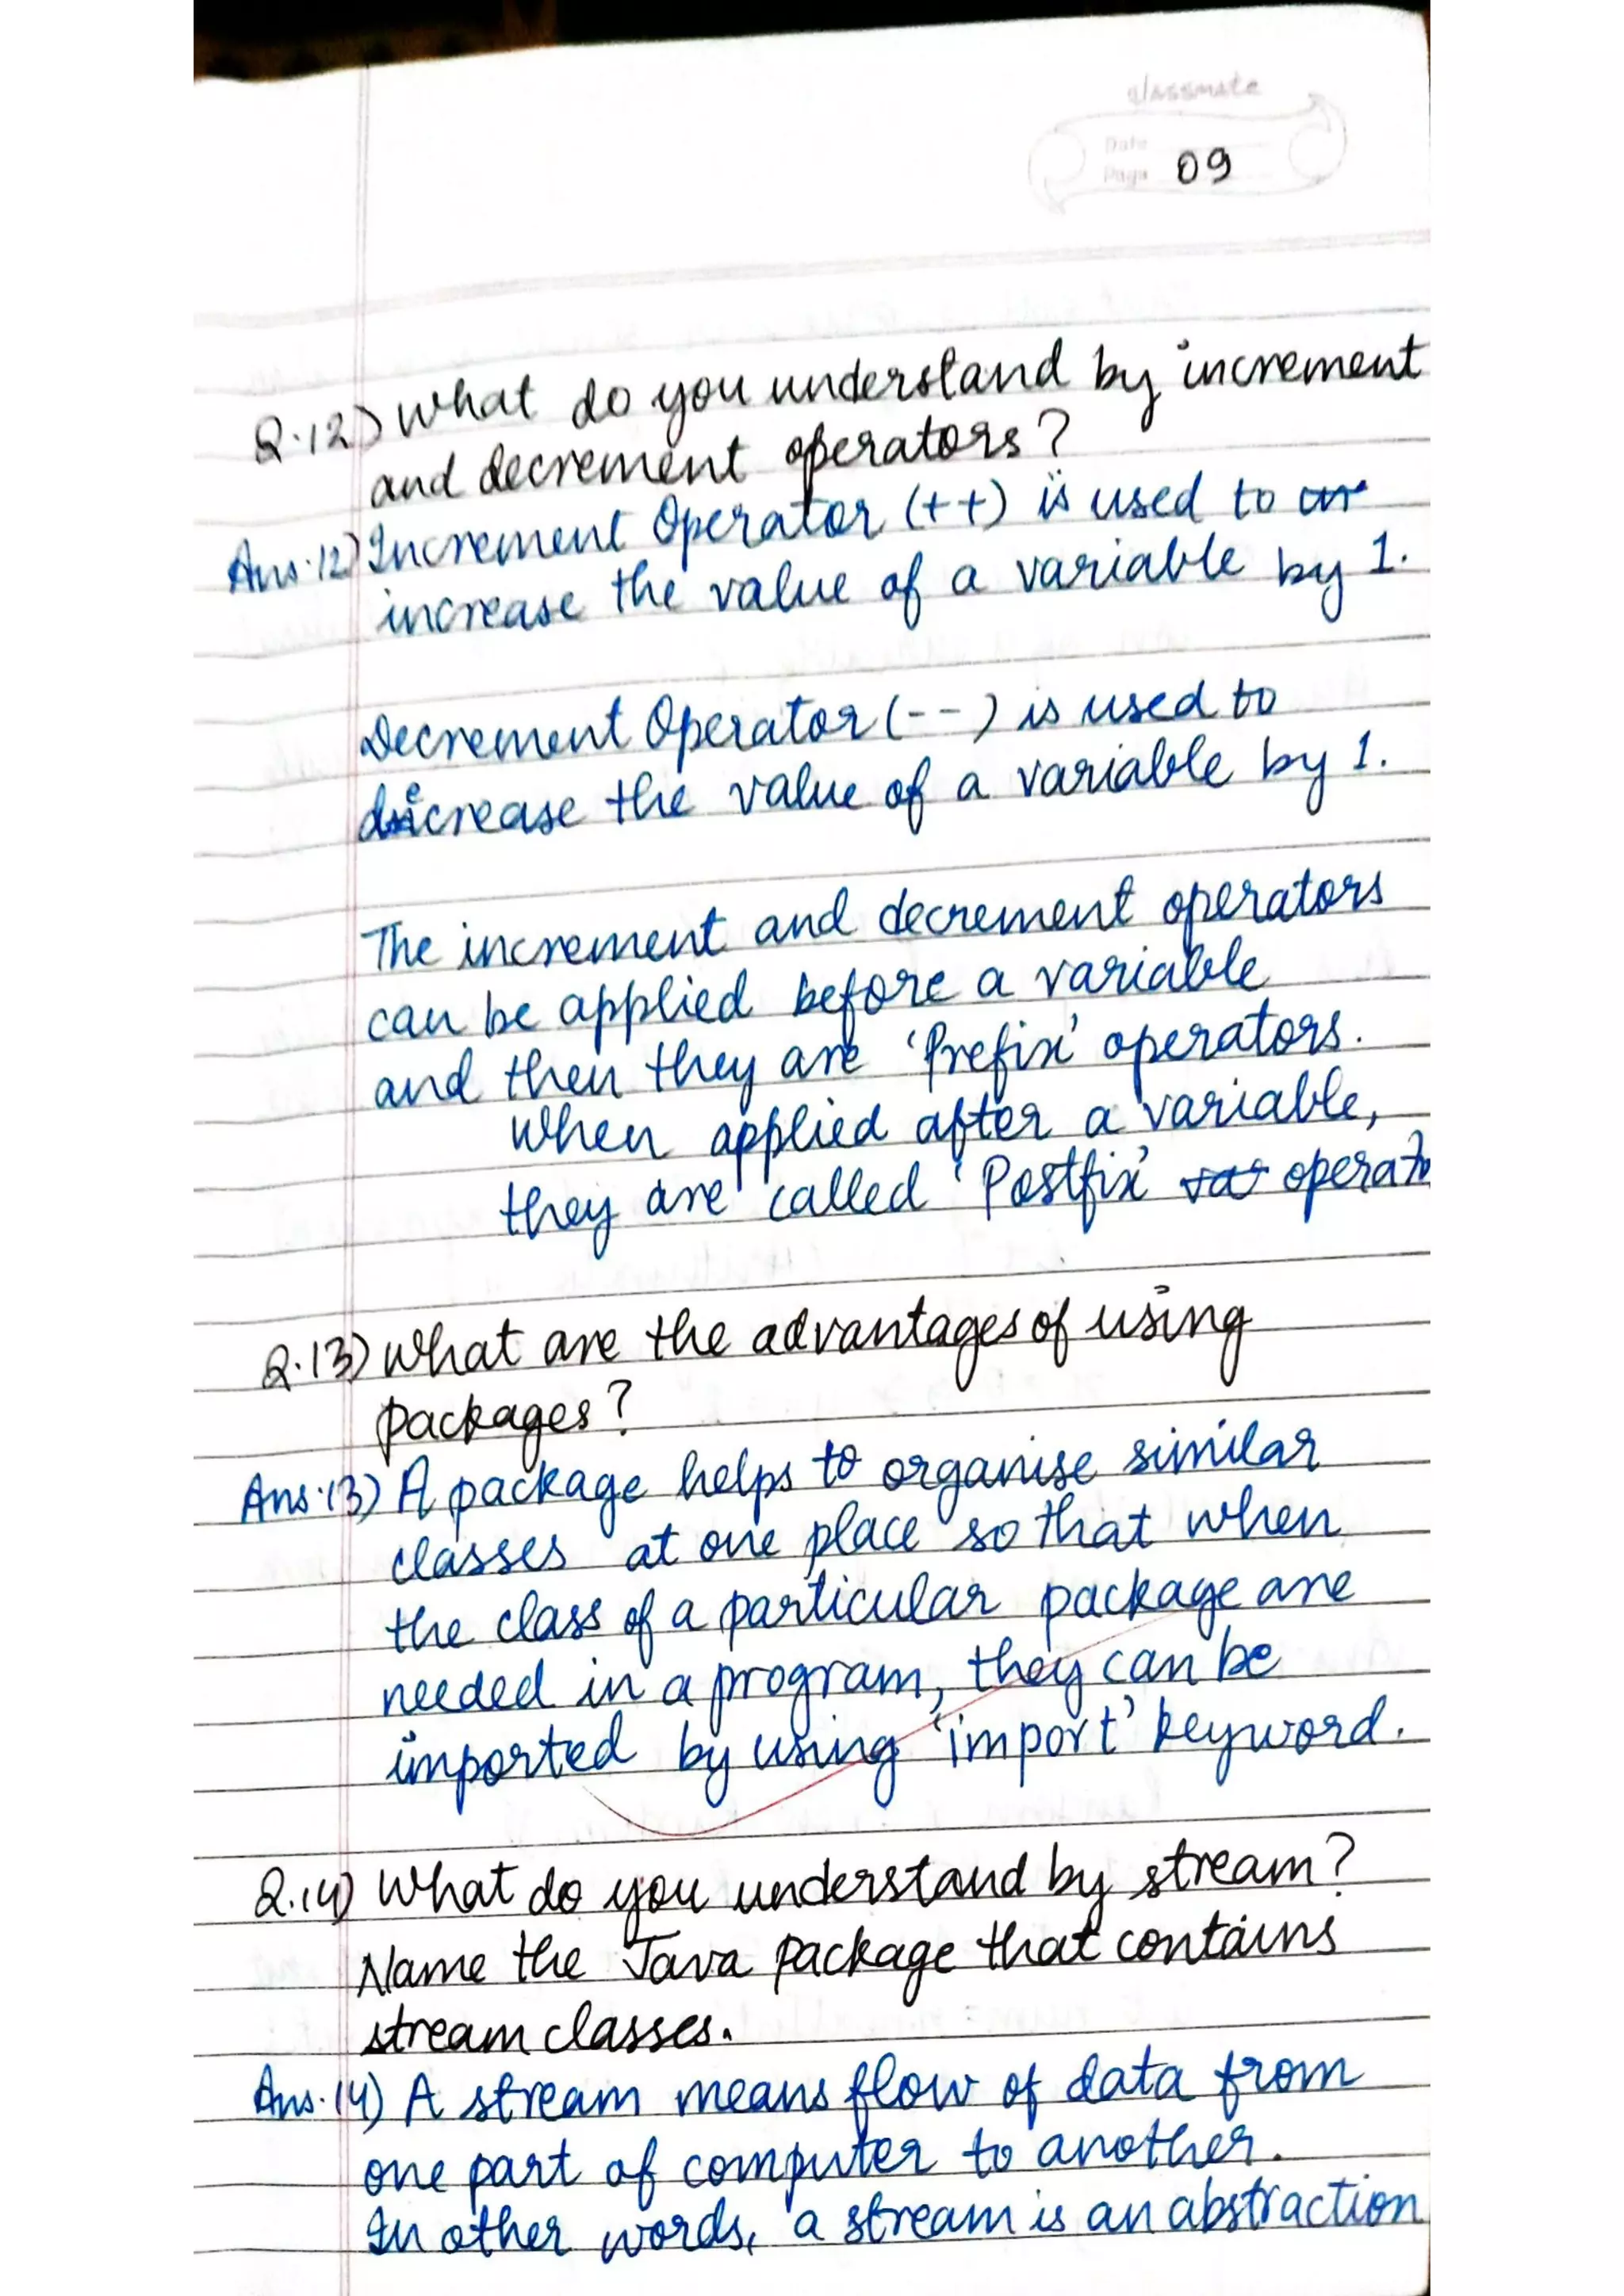 classmate
Date
Page 09
Q.12) What do you understand by increment
and decrement operators?
Ans.12) Increment Operator (++) is used to
increase the value of a variable by 1.
Decrement Operator (--) is used to
decrease the value of a variable by 1.
The increment and decrement operators
can be applied before a variable
and then they are 'Prefix' operators.
When applied after a variable,
they are called 'Postfix' operato
Q.13) What are the advantages of using
packages?
Ans.13) A package helps to organise similar
classes at one place so that when
the class of a particular package are
needed in a program, they can be
imported by using 'import' keyword.
Q.14) What do you understand by stream?
Name the Java package that contains
stream classes.
Ans.14) A stream means flow of data from
one part of computer to another.
In other words, a stream is an abstraction